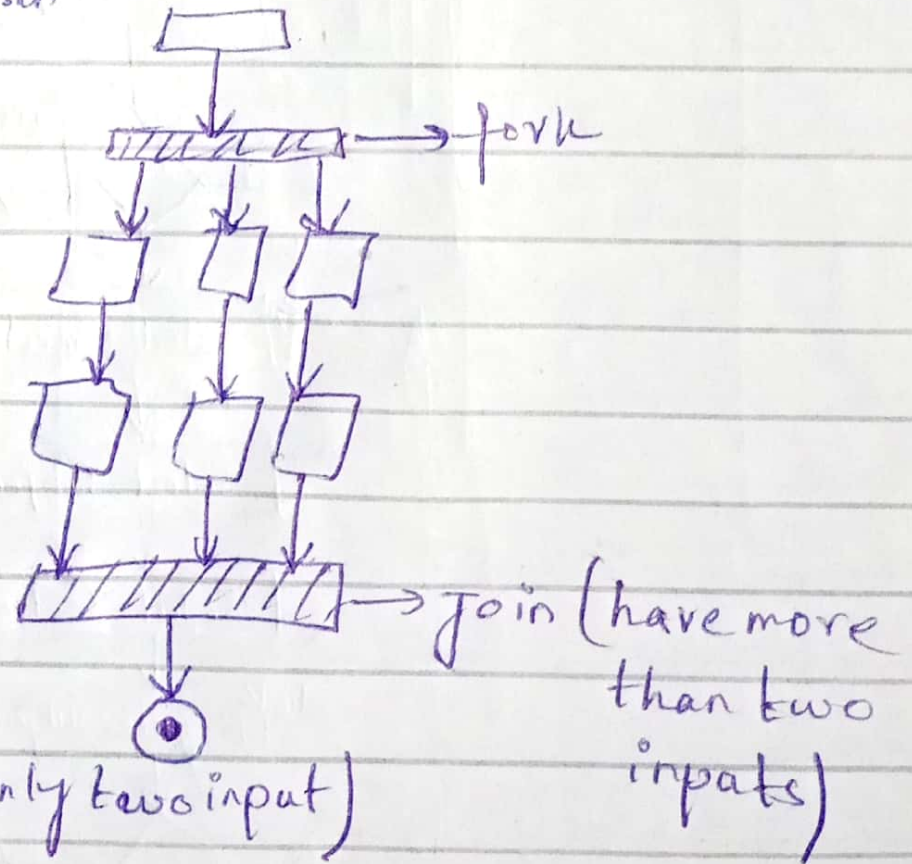 fork
Join (have more
than two
inpats)
nly two input)